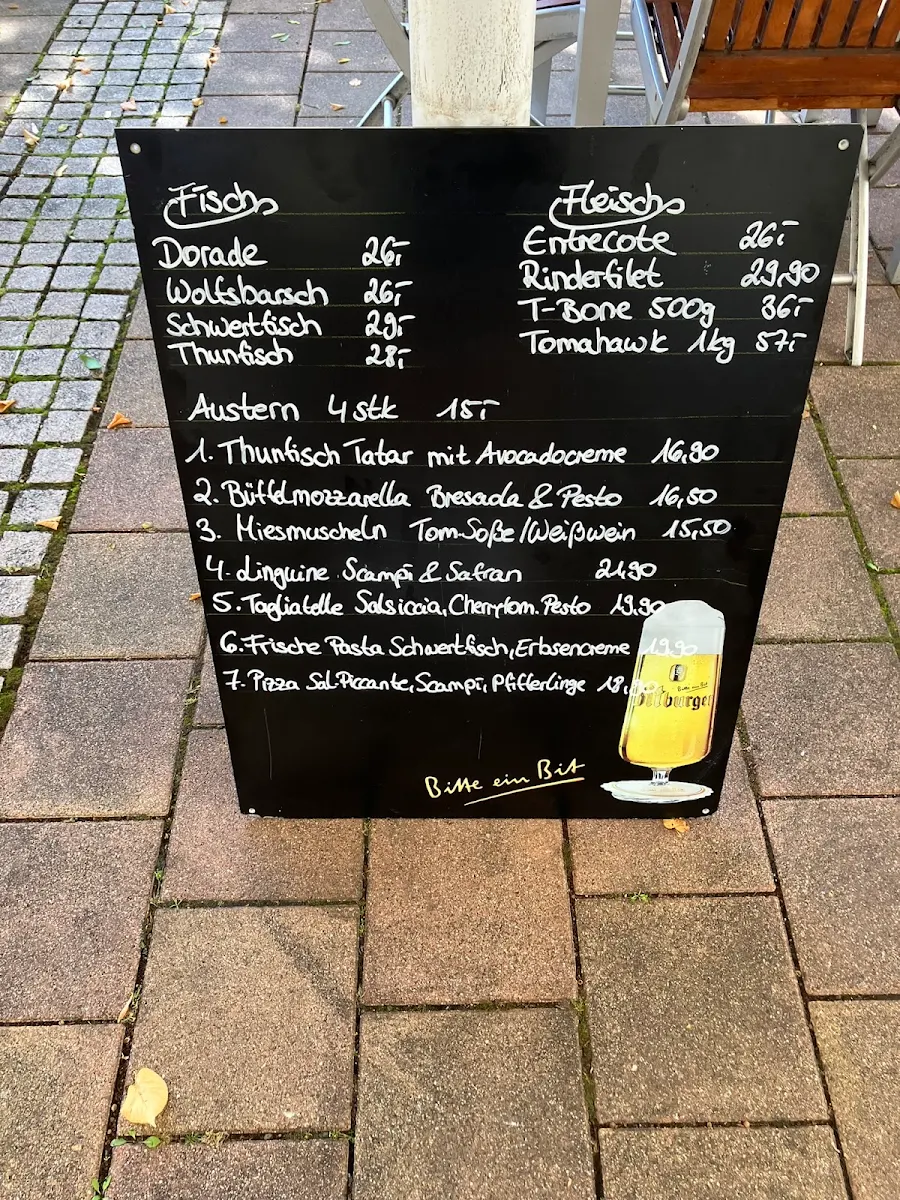 Fisch
Dorade 26,-
Wolfsbarsch 26,-
Schwertfisch 29,-
Thunfisch 28,-
Fleisch
Entrecote 26,-
Rinderfilet 29,90
T-Bone 500g 36,-
Tomahawk 1kg 57,-
Austern 4 stk 15,-
1. Thunfisch Tatar mit Avocadocreme 16,90
2. Büffelmozzarella Bresaola & Pesto 16,50
3. Miesmuscheln Tom.Soße/Weißwein 15,50
4. Linguine Scampi & Safran 21,90
5. Tagliatelle Salsiccia, Cherrytom. Pesto 19,90
6. Frische Pasta Schwertfisch, Erbsencreme 19,90
7. Pizza Sal.Piccante, Scampi, Pfifferlinge 18,90
Bitte ein Bit
Bitburger
Bitte ein Bit